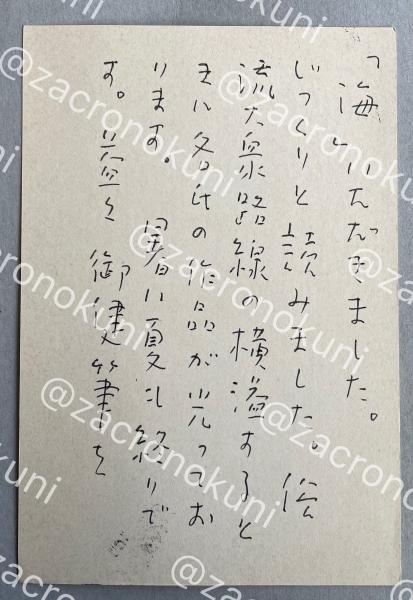 「海」いただきました。
じっくりと読みました。俗
流大衆路線の横溢すると
きに各氏の作品が光ってお
ります。暑い夏も終りで
す。益々御健筆を
@zacronokuni